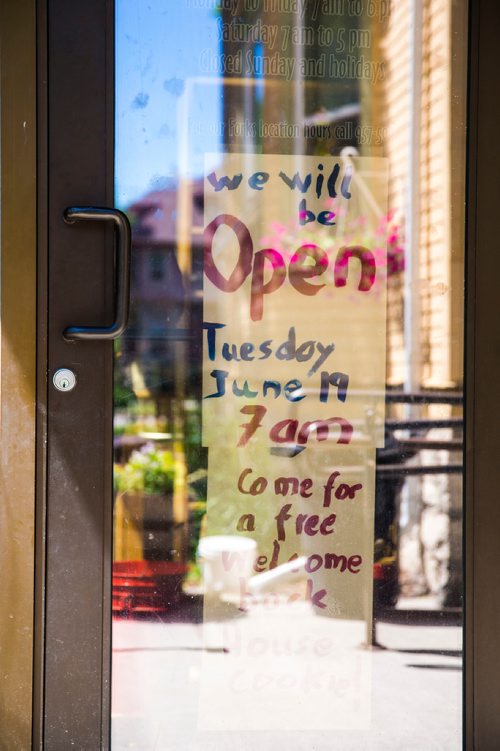 Monday to Friday 7 am to 6 p
Saturday 7 am to 5 pm
Closed Sunday and holidays
Forks location hours call
we will
be
Open
Tuesday
June 19
7am
Come for
a free
welcome
back
House
cookie!